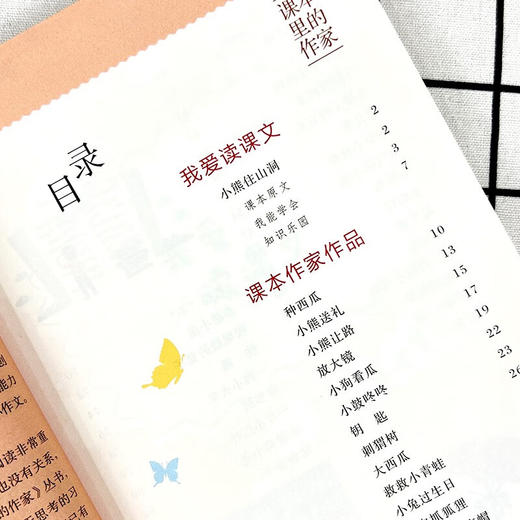 课本
里的
作家
目录
我爱读课文
小熊住山洞 2
课本原文 2
我能学会 3
知识乐园 7
课本作家作品
种西瓜 10
小熊送礼 13
小熊让路 15
放大镜 17
小狗看瓜 19
小鼓咚咚 22
钥匙 23
刺猬树 26
大西瓜
救救小青蛙
小兔过生日
抓狐狸
能力
作文。
阅读非常重
也没有关系，
的作家》丛书，
思考的习
已有